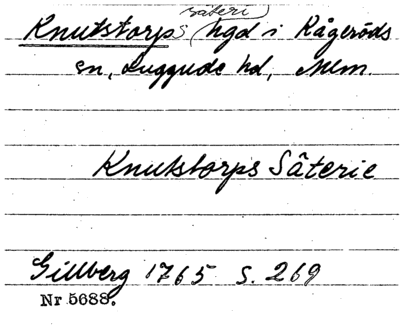 säteri)
Knutstorps (hgd i Kågeröds
sn, Luggude hd, Mlm.
Knutstorps Säterie
Gillberg 1765 S. 269
Nr 5688.